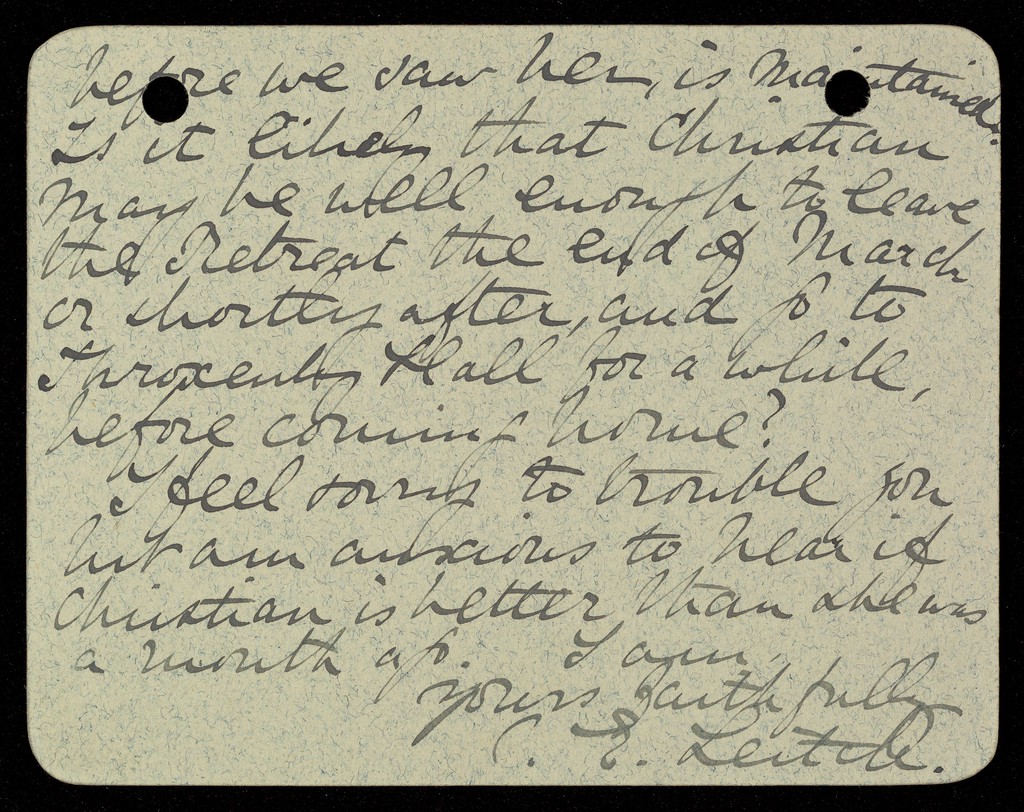 before we saw her, is maintained.
Is it likely that Christian
may be well enough to leave
the Retreat the end of March
or shortly after, and go to
Throxenby Hall for a while,
before coming home?
I feel sorry to trouble you
but am anxious to hear if
Christian is better than she was
a month ago. I am,
yours faithfully
C. E. Leitch.